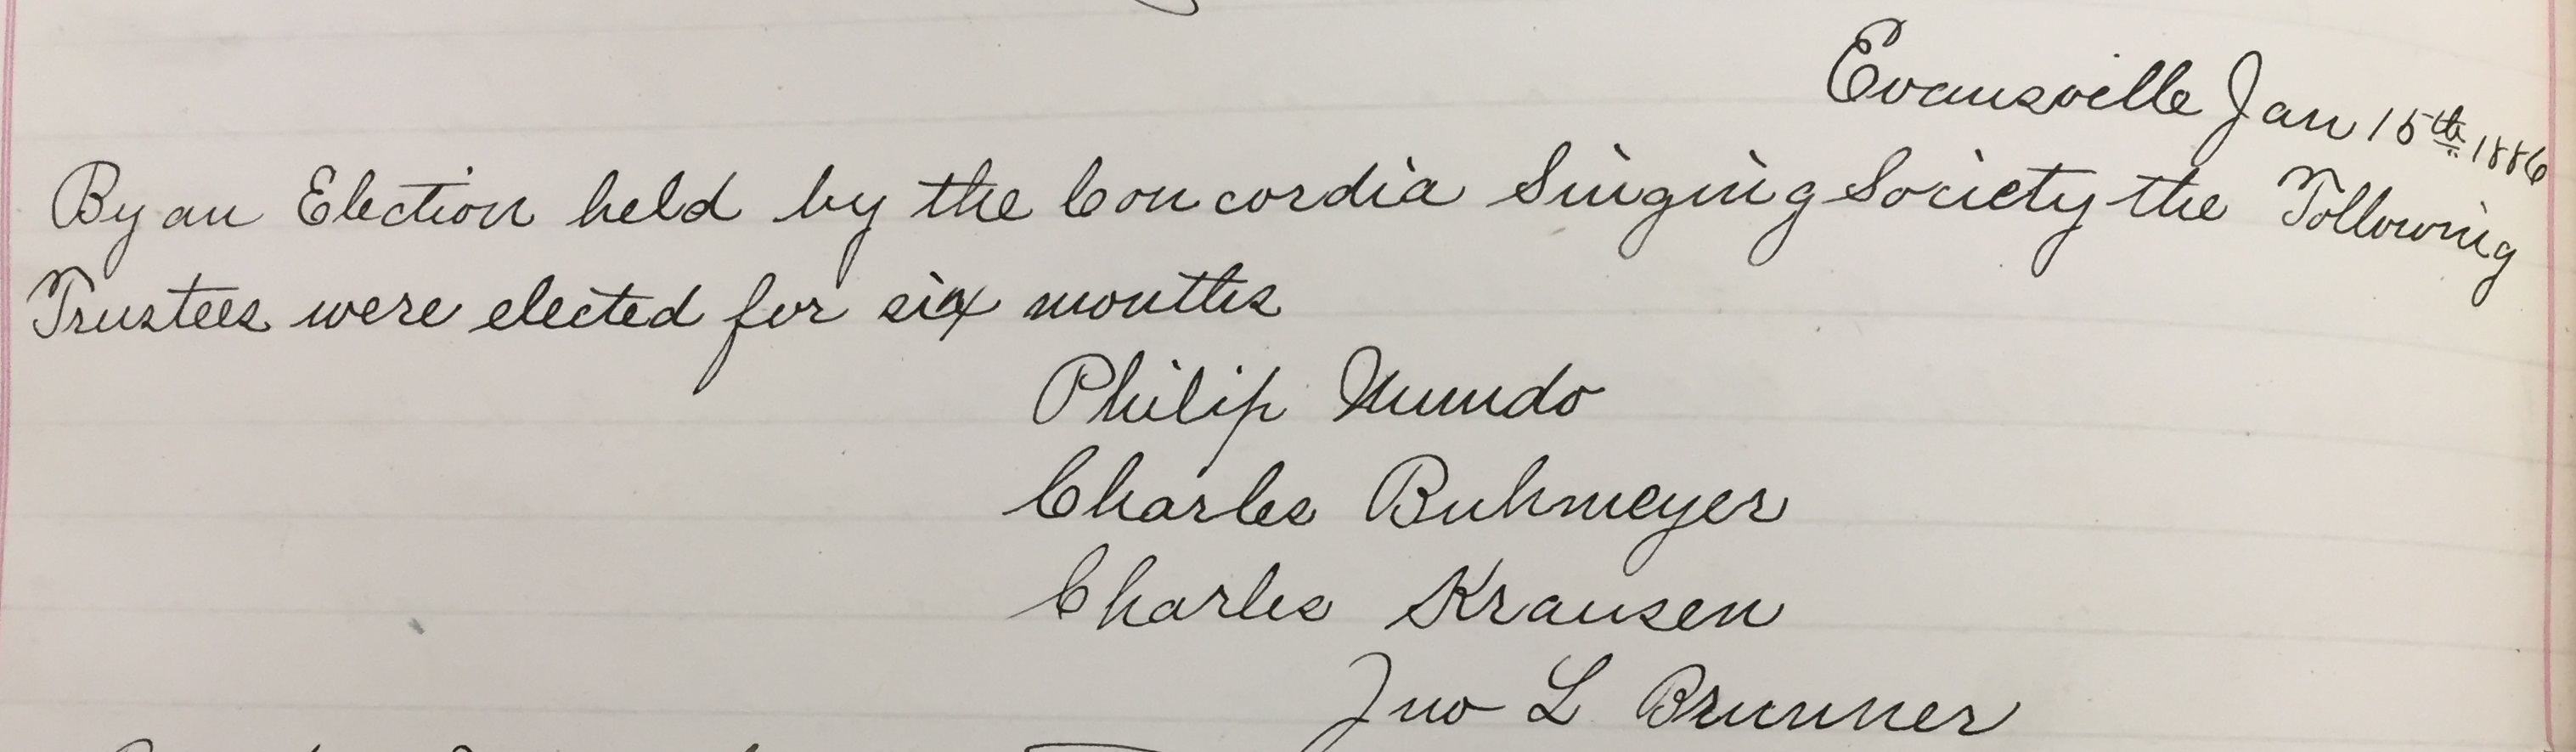 Evansville Jan 15th 1886
By an Election held by the Concordia Singing Society the Following
Trustees were elected for six months
Philip Mundo
Charles Buhmeyer
Charles Krausen
Jno L Brunner